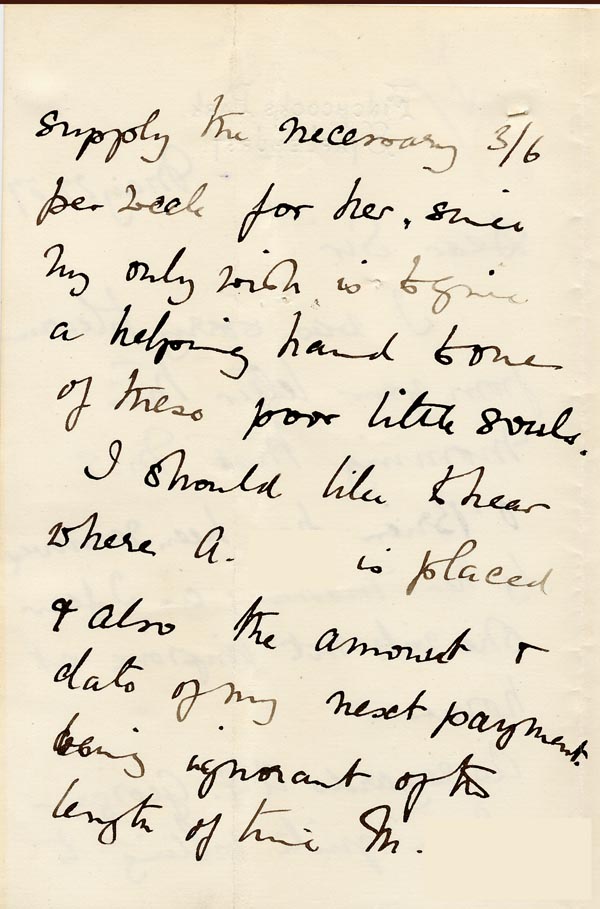 supply the necessary 5/6
per week for her, since
my only wish is to give
a helping hand to one
of these poor little souls.
I should like to hear
where A. is placed
& also the amount &
date of my next payment.
being ignorant of the
length of time M.